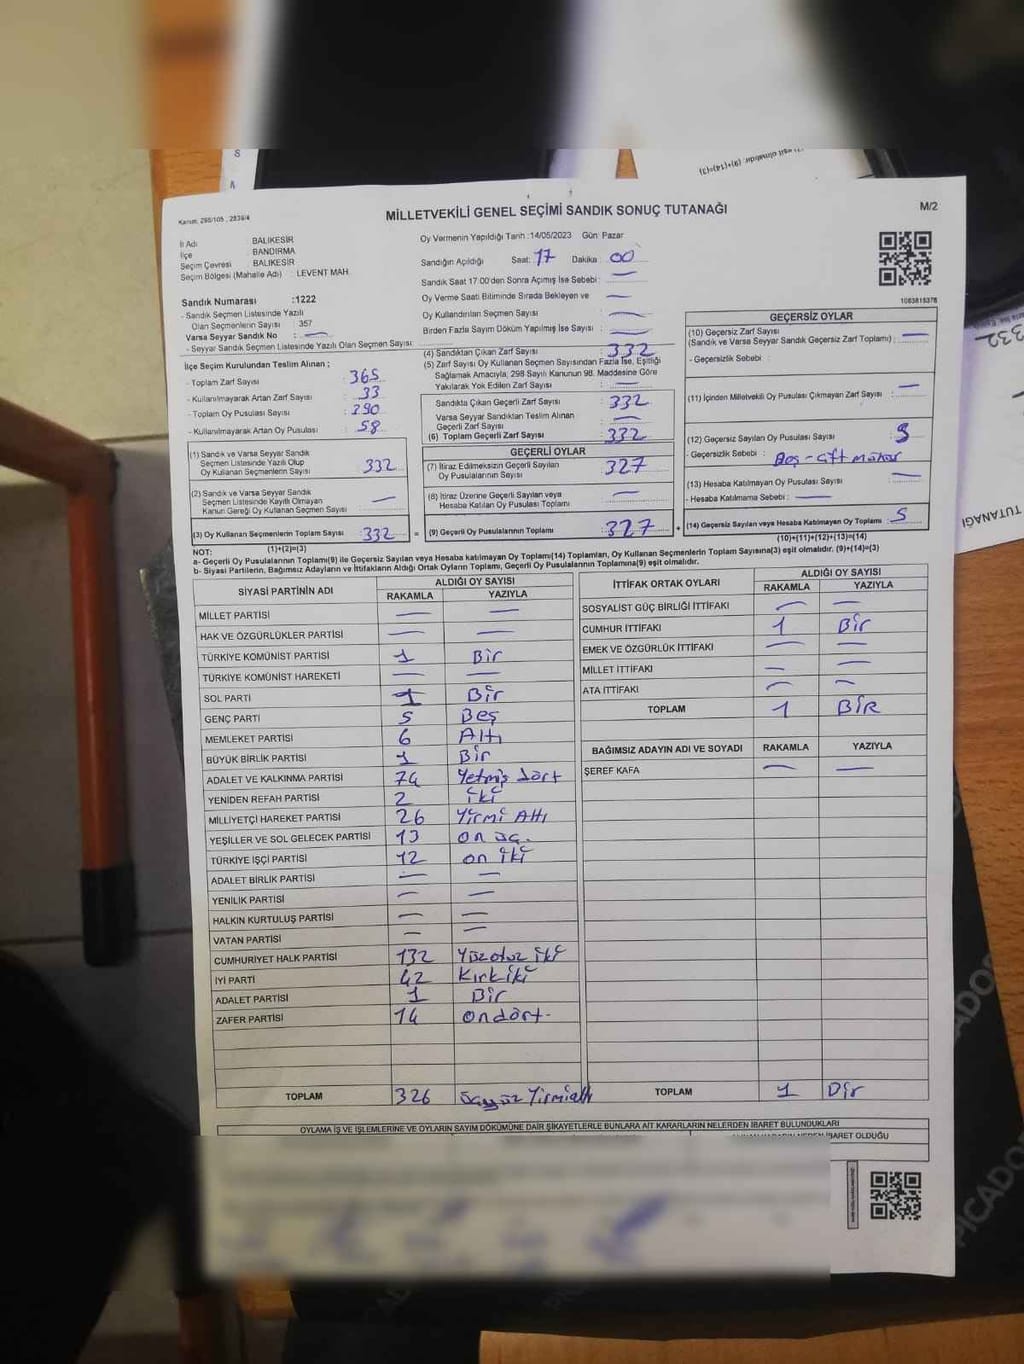 Kanun: 298/105 , 2839/4
MİLLETVEKİLİ GENEL SEÇİMİ SANDIK SONUÇ TUTANAĞI
M/2
İl Adı BALIKESİR
İlçe BANDIRMA
Seçim Çevresi BALIKESİR
Seçim Bölgesi (Mahalle Adı) : LEVENT MAH.
Sandık Numarası :1222
- Sandık Seçmen Listesinde Yazılı
Olan Seçmenlerin Sayısı : 357
Varsa Seyyar Sandık No : —
- Seyyar Sandık Seçmen Listesinde Yazılı Olan Seçmen Sayısı:
Oy Vermenin Yapıldığı Tarih :14/05/2023 Gün: Pazar
Sandığın Açıldığı Saat: 17 Dakika : 00
Sandık Saat 17:00'den Sonra Açımış İse Sebebi : —
Oy Verme Saati Bitiminde Sırada Bekleyen ve —
Oy Kullandırılan Seçmen Sayısı : —
Birden Fazla Sayım Döküm Yapılmış İse Sayısı : —
1083815376
İlçe Seçim Kurulundan Teslim Alınan ;
- Toplam Zarf Sayısı : 365
- Kullanılmayarak Artan Zarf Sayısı : 33
- Toplam Oy Pusulası Sayısı : 390
- Kullanılmayarak Artan Oy Pusulası : 58
(1) Sandık ve Varsa Seyyar Sandık
Seçmen Listesinde Yazılı Olup
Oy Kullanan Seçmenlerin Sayısı 332
(2) Sandık ve Varsa Seyyar Sandık
Seçmen Listesinde Kayıtlı Olmayan
Kanun Gereği Oy Kullanan Seçmen Sayısı : —
(3) Oy Kullanan Seçmenlerin Toplam Sayısı : 332
(1)+(2)=(3)
(4) Sandıktan Çıkan Zarf Sayısı : 332
(5) Zarf Sayısı Oy Kullanan Seçmen Sayısından Fazla İse, Eşitliği
Sağlamak Amacıyla; 298 Sayılı Kanunun 98. Maddesine Göre
Yakılarak Yok Edilen Zarf Sayısı : —
Sandıkta Çıkan Geçerli Zarf Sayısı : 332
Varsa Seyyar Sandıktan Teslim Alınan
Geçerli Zarf Sayısı : —
(6) Toplam Geçerli Zarf Sayısı : 332
GEÇERLİ OYLAR
(7) İtiraz Edilmeksizin Geçerli Sayılan
Oy Pusulası Sayısı : 327
(8) İtiraz Üzerine Geçerli Sayılan veya
Hesaba Katılan Oy Pusulası Toplamı : —
(9) Geçerli Oy Pusulalarının Toplamı : 327
GEÇERSİZ OYLAR
(10) Geçersiz Zarf Sayısı
(Sandık ve Varsa Seyyar Sandık Geçersiz Zarf Toplamı) : —
- Geçersizlik Sebebi :
(11) İçinden Milletvekili Oy Pusulası Çıkmayan Zarf Sayısı : —
(12) Geçersiz Sayılan Oy Pusulası Sayısı : 5
- Geçersizlik Sebebi : Boş - Çift mühür
(13) Hesaba Katılmayan Oy Pusulası Sayısı : —
- Hesaba Katılmama Sebebi : —
(14) Geçersiz Sayılan veya Hesaba Katılmayan Oy Toplamı : 5
(10)+(11)+(12)+(13)=(14)
NOT:
a- Geçerli Oy Pusulalarının Toplamı(9) ile Geçersiz Sayılan veya Hesaba katılmayan Oy Toplamı(14) Toplamları, Oy Kullanan Seçmenlerin Toplam Sayısına(3) eşit olmalıdır. (9)+(14)=(3)
b- Siyasi Partilerin, Bağımsız Adayların ve İttifakların Aldığı Ortak Oyların Toplamı, Geçerli Oy Pusulalarının Toplamına(9) eşit olmalıdır.
SİYASİ PARTİNİN ADI ALDIĞI OY SAYISI
RAKAMLA YAZIYLA
MİLLET PARTİSİ — —
HAK VE ÖZGÜRLÜKLER PARTİSİ — —
TÜRKİYE KOMÜNİST PARTİSİ 1 Bir
TÜRKİYE KOMÜNİST HAREKETİ — —
SOL PARTİ 1 Bir
GENÇ PARTİ 5 Beş
MEMLEKET PARTİSİ 6 Altı
BÜYÜK BİRLİK PARTİSİ 1 Bir
ADALET VE KALKINMA PARTİSİ 74 Yetmiş dört
YENİDEN REFAH PARTİSİ 2 iki
MİLLİYETÇİ HAREKET PARTİSİ 26 Yirmi Altı
YEŞİLLER VE SOL GELECEK PARTİSİ 13 on üç.
TÜRKİYE İŞÇİ PARTİSİ 12 on iki
ADALET BİRLİK PARTİSİ — —
YENİLİK PARTİSİ — —
HALKIN KURTULUŞ PARTİSİ — —
VATAN PARTİSİ — —
CUMHURİYET HALK PARTİSİ 132 Yüzotuz iki
İYİ PARTİ 42 Kırkiki
ADALET PARTİSİ 1 Bir
ZAFER PARTİSİ 14 Ondört-
TOPLAM 326 üçyüz Yirmialtı
İTTİFAK ORTAK OYLARI ALDIĞI OY SAYISI
RAKAMLA YAZIYLA
SOSYALİST GÜÇ BİRLİĞİ İTTİFAKI — —
CUMHUR İTTİFAKI 1 Bir
EMEK VE ÖZGÜRLÜK İTTİFAKI — —
MİLLET İTTİFAKI — —
ATA İTTİFAKI — —
TOPLAM 1 BİR
BAĞIMSIZ ADAYIN ADI VE SOYADI RAKAMLA YAZIYLA
ŞEREF KAFA — —
TOPLAM 1 Bir
OYLAMA İŞ VE İŞLEMLERİNE VE OYLARIN SAYIM DÖKÜMÜNE DAİR ŞİKAYETLERLE BUNLARA AİT KARARLARIN NELERDEN İBARET BULUNDUKLARI
İBARET OLDUĞU
332
TUTANAĞI
PICADOR